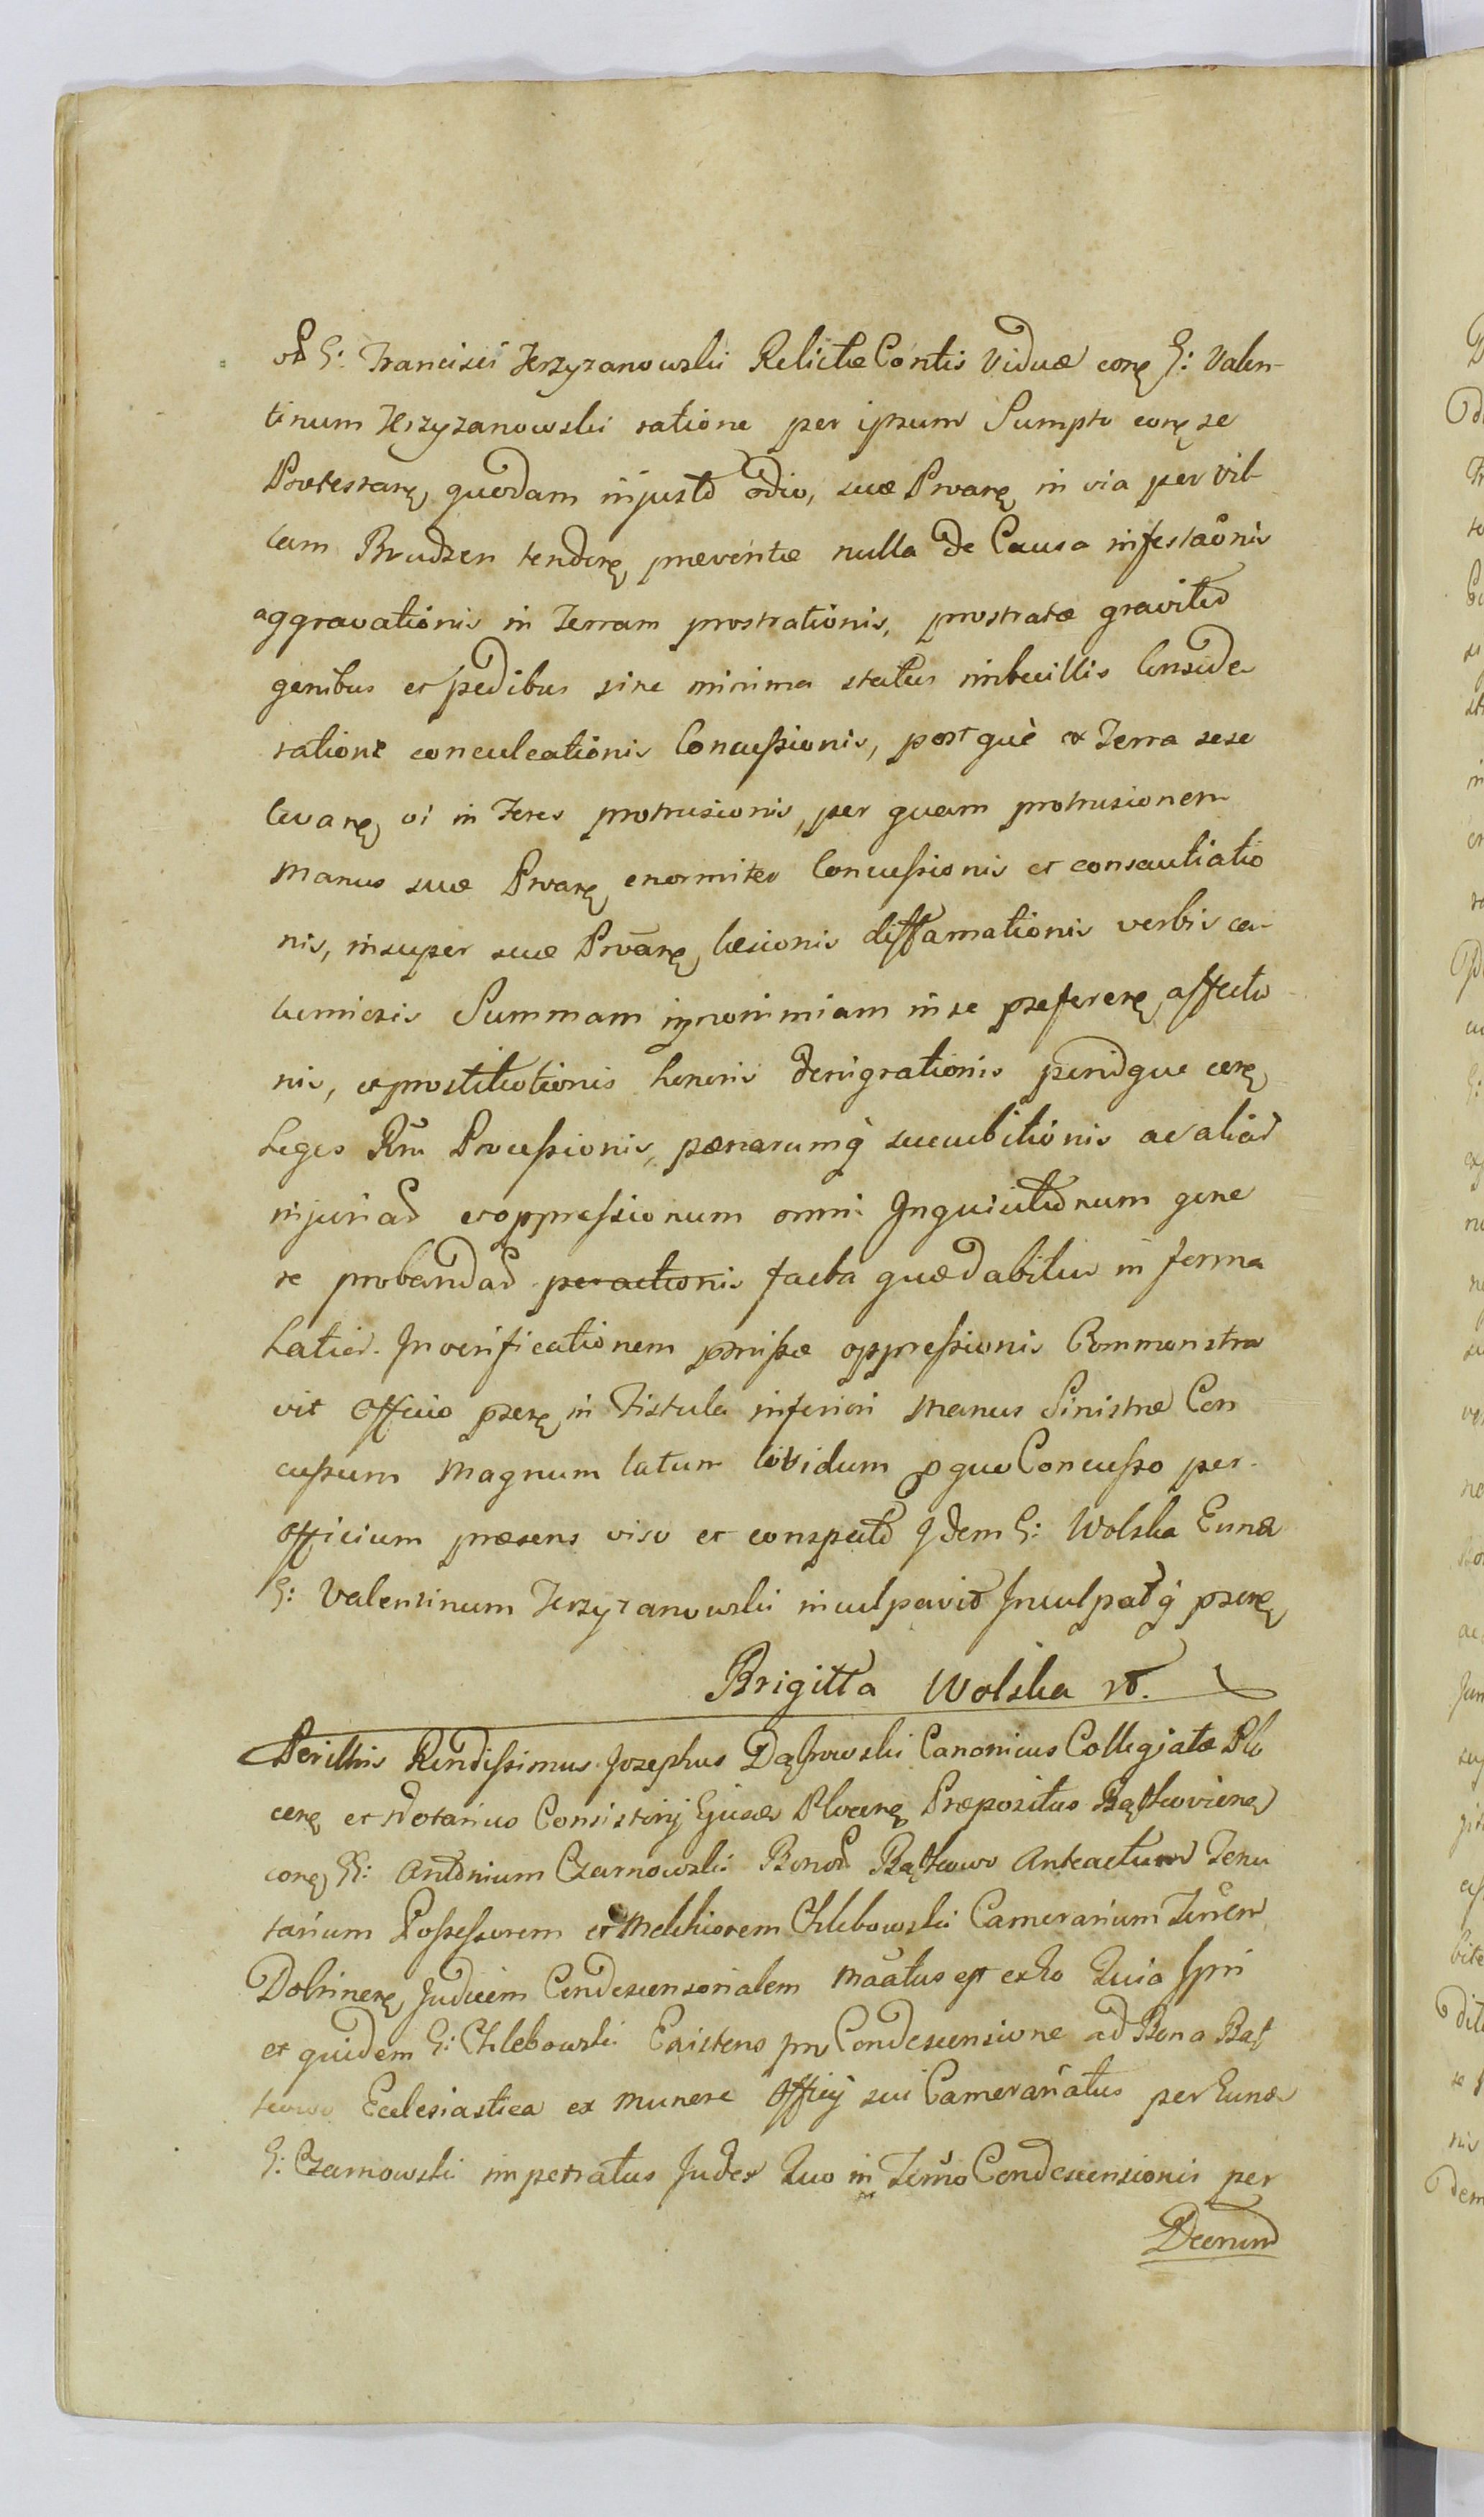 G: Francisci Krzyzanowski Relictæ Contis Viduæ conę G: Valen-
tinum Krzyzanowski ratione per ipsum Sumpto conę se
Protestanę quodam injusto odio, suæ Prvanę in via per Vil-
lam Brudzen tendenę præventæ nulla de Causa infestaõnis
aggravationis in Terram prostrationis, prostratæ graviter
genibus et pedibus sine minima status imbecillis Conside-
ratione conculcationis Concussionis, postquè ex Terra sese
levanę vi in Feres protrusionis, per quam protrusionem
Manus suæ Prvanę enormiter Concussionis et consautiatio
nis, insuper suæ Prvanę læsionis diffamationis verbis ca-
lumiosis Summam ignonimiam in se præferenę affectio
nis, et prostitutionis honoris denigrationis penidque conę
Leges Rñi Processionis, pænarumq̃ succubitionis ac aliar
injuriar et oppressionum omni Inquisitionum gene
re probandar peractionis facta quæ dabitur in forma
Latior. In verificationem præmissæ oppressionis Commonstra
vit Officio psenę in Fistula inferiori Manus Sinistræ Con
cussum Magnum latum lividum p quo Concusso per
Officium præsens viso et conspecto Idem G: Wolska Eund
G: Valentinum Krzyzanowski inculpavit Inculpatq̃ psenę
Brigitta Wolska
Perillris Rendissimus Josephus Dąbrowski Canonicus Collegiatæ Plo
cenę et Notarius Consistorij Ejusd Plocenę Præpositus
conę GG: Antonium Czarnowski Bonor Anteactum Tenu
tarium Possessorem et Melchiorem Chlebowski Camerarium Terrem
Dobrinenę Judicem Condescensorialem est exho Quia Ipsi
et quidem G: Chlebowski Existens pro Condescensione ad Bona
Ecclesiastica ex Munere Officij sui Camerariatus per Eund
G: Czarnowski impetratus Judex Quo in Termo Condescensionis per
Decenum